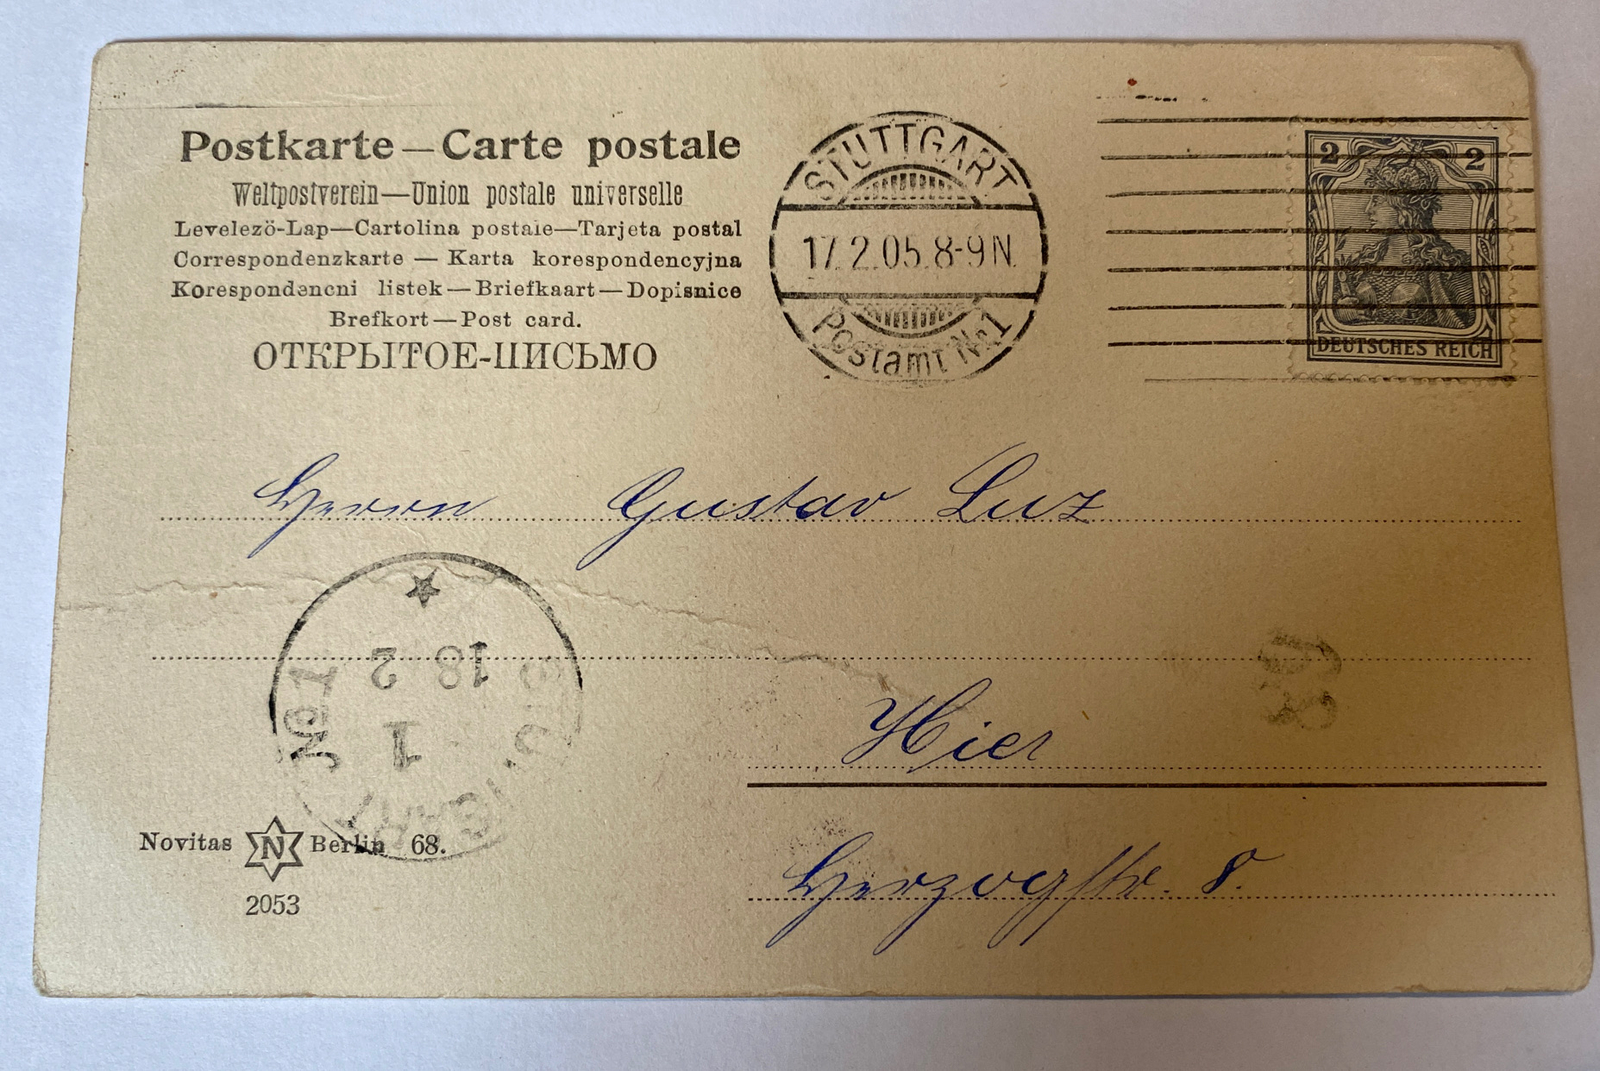 Postkarte — Carte postale
Weltpostverein — Union postale universelle
Levelezö-Lap — Cartolina postale — Tarjeta postal
Correspondenzkarte — Karta korespondencyjna
Korespondencni listek — Briefkaart — Dopisnice
Brefkort — Post card.
ОТКРЫТОЕ-ПИСЬМО
STUTTGART
17.2.05.8-9N.
Postamt Nr.1
2 2
DEUTSCHES REICH
Herrn Gustav Luz
Hier
Herzogstr. 8.
STUTTGART №1
18 2
1
Novitas N Berlin 68.
2053